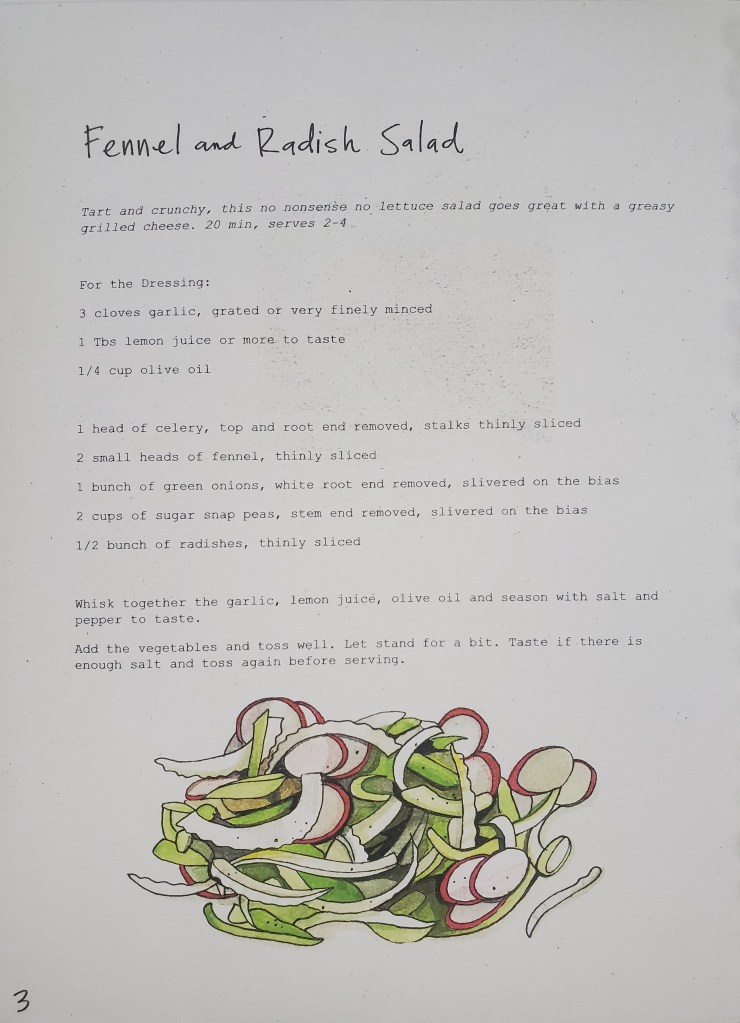 Fennel and Radish Salad
Tart and crunchy, this no nonsense no lettuce salad goes great with a greasy
grilled cheese. 20 min, serves 2-4
For the Dressing:
3 cloves garlic, grated or very finely minced
1 Tbs lemon juice or more to taste
1/4 cup olive oil
1 head of celery, top and root end removed, stalks thinly sliced
2 small heads of fennel, thinly sliced
1 bunch of green onions, white root end removed, slivered on the bias
2 cups of sugar snap peas, stem end removed, slivered on the bias
1/2 bunch of radishes, thinly sliced
Whisk together the garlic, lemon juice, olive oil and season with salt and
pepper to taste.
Add the vegetables and toss well. Let stand for a bit. Taste if there is
enough salt and toss again before serving.
3